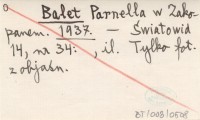 Balet Parnella w Zako-
panem. 1937. — Światowid
14, na 34: , il. Tylko fot.
z objaśn.
BT/008/0508